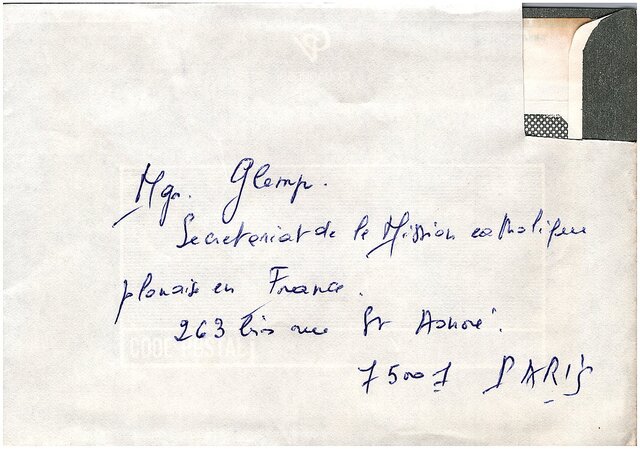 Mgr. Glemp.
Secretariat de la Mission catholique
plonaise en France.
263 bis rue St Honoré.
75001 PARIS
CODE POSTAL